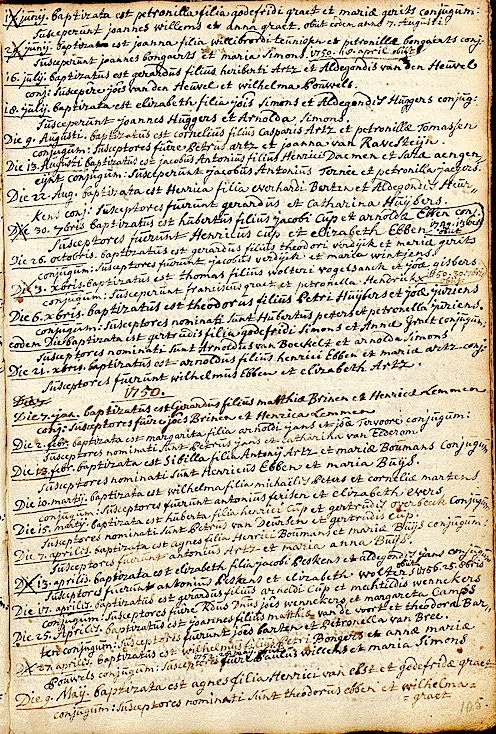 17 junij. baptizata est petronilla filia godefridi graet et mariæ gerits conjugum:
Susceperunt joannes willems et anna graet, obiit eodem anno 7. Augusti
2 junij. baptizata est joanna filia willibrordi teunisen et petronillæ bongaerts conj.
Susceperunt joannes bongaerts et maria Simons. 1750. 30. april obiit
16. julij. baptizatus est gerardus filius heriberti Artz et Aldegondis van den Heuvel
conj: Suscepere joës van den Heuvel et wilhelma Pouwels.
18. julij. baptizata est elizabeth filia joïs Simons et Aldegondis Huggers conjug:
Susceperunt joannes Huggers et Arnolda Simons.
Die 9. Augusti. baptizatus est cornelius filius Casparis Artz et petronillæ Tomassen
conjugum: Susceptores fuêre Petrus artz et joanna van Ravesteijn.
Die 13. Augusti baptizatus est jacobus Antonius filius Henrici Daemen et aengen-
eijnt conjugum: Susceperunt jacobus Antonius Tornee et petronilla jaegers
Die 22. Aug. baptizata est Henrica filia everhardi Bertzn et Aldegondis Heur-
kens conj: Susceptores fuerunt gerardus et Catharina Huijbers.
Die 30. 7bris baptizatus est hubertus filius jacobi Cup et arnoldæ Ebben conj.
Susceptores fuerunt Henricus cup et elizabeth Ebben
Die 26. octobris. baptizatus est gerardus filius theodori verdijk et mariæ gerits
conjugum: Susceptores fuerunt jacobus verdijk et maria wintjens.
Die 3. xbris. baptizatus est thomas filius wolteri vogelsanck et joæ gisbers
conjugum: Susceperunt franciscus graet et petronella Hendrickx
Die 6. xbris. baptizatus est theodorus filius Petri Huijbers et joæ jurriens
conjugum: Susceptores nominati Sunt Hubertus peters et petronella jurriens.
eodem Die baptizata est gertrudis filia godefridi Simons et Annæ graet conjugum:
Susceptores nominati Sunt Arnoldus van Beeckelt et arnolda Simons
Die 21. xbris. baptizatus est arnoldus filius henrici Ebben et mariæ artz conj.
Susceptores fuerunt wilhelmus Ebben et elizabeth Artz.
1750.
Die 7. jan. baptizatus est Gerardus filius matthiæ Brinen et Henricæ Lemmen
conj: Susceptores fuere joës Brinen et Henrica Lemmen
Die 2. febr. baptizata est margarita filia arnoldi jans et joæ Tervoore conjugum:
Susceptores nominati Sunt Petrus jans et catharina van Elderom
Die 12. febr. baptizata est Sibilla filia Antonij Artz et mariæ Boumans Conjugum
Susceptores nominati Sunt Henricus Ebben et maria Buijs.
Die 10. martij. baptizata est wilhelma filia michaëlis Peters et corneliæ martens
conjugum: Susceptores fuerunt antonius frisen et elizabeth evers
Die 15. martij. baptizata est huberta filia henrici Cup et gertrudis overbeeck conjugum
Susceptores nominati Sunt Petrus van Deursen et gertrudis Cup.
Die 7. aprilis. baptizata est agnes filia Henrici Boumans et mariæ Buijs conjugum:
Susceptores fuerunt antonius Artz et maria anna Buijs.
Die 13. aprilis. baptizata est elizabeth filia jacobi Peskens et aldegondis jans conjugum
Susceptores fuerunt antonius Peskens et elizabeth wolters obiit 1756. 25. 8bris
Die 17. aprilis. baptizatus est gerardus filius arnoldi Cup et mechtildis wennekers
conjugum: Susceptores fuêre Rdus Dnus joës wennekers et margareta Camps
Die 25. Aprilis. baptizatus est joannes filius matthiæ van de voort et theodoræ Bar,
ten conjugum: Susceptores fuerunt joës barten et Petronella van Bree.
Die 27. aprilis. baptizatus est wilhelmus filius Petri Bongers et annæ mariæ
Pouwels conjugum: Susceptores fuere Paulus willems et maria Simons
Die 9. Maij. baptizata est agnes filia Henrici van elst et godefridæ graet
conjugum: Susceptores nominati Sunt theodorus ebben et wilhelma
graet
105.